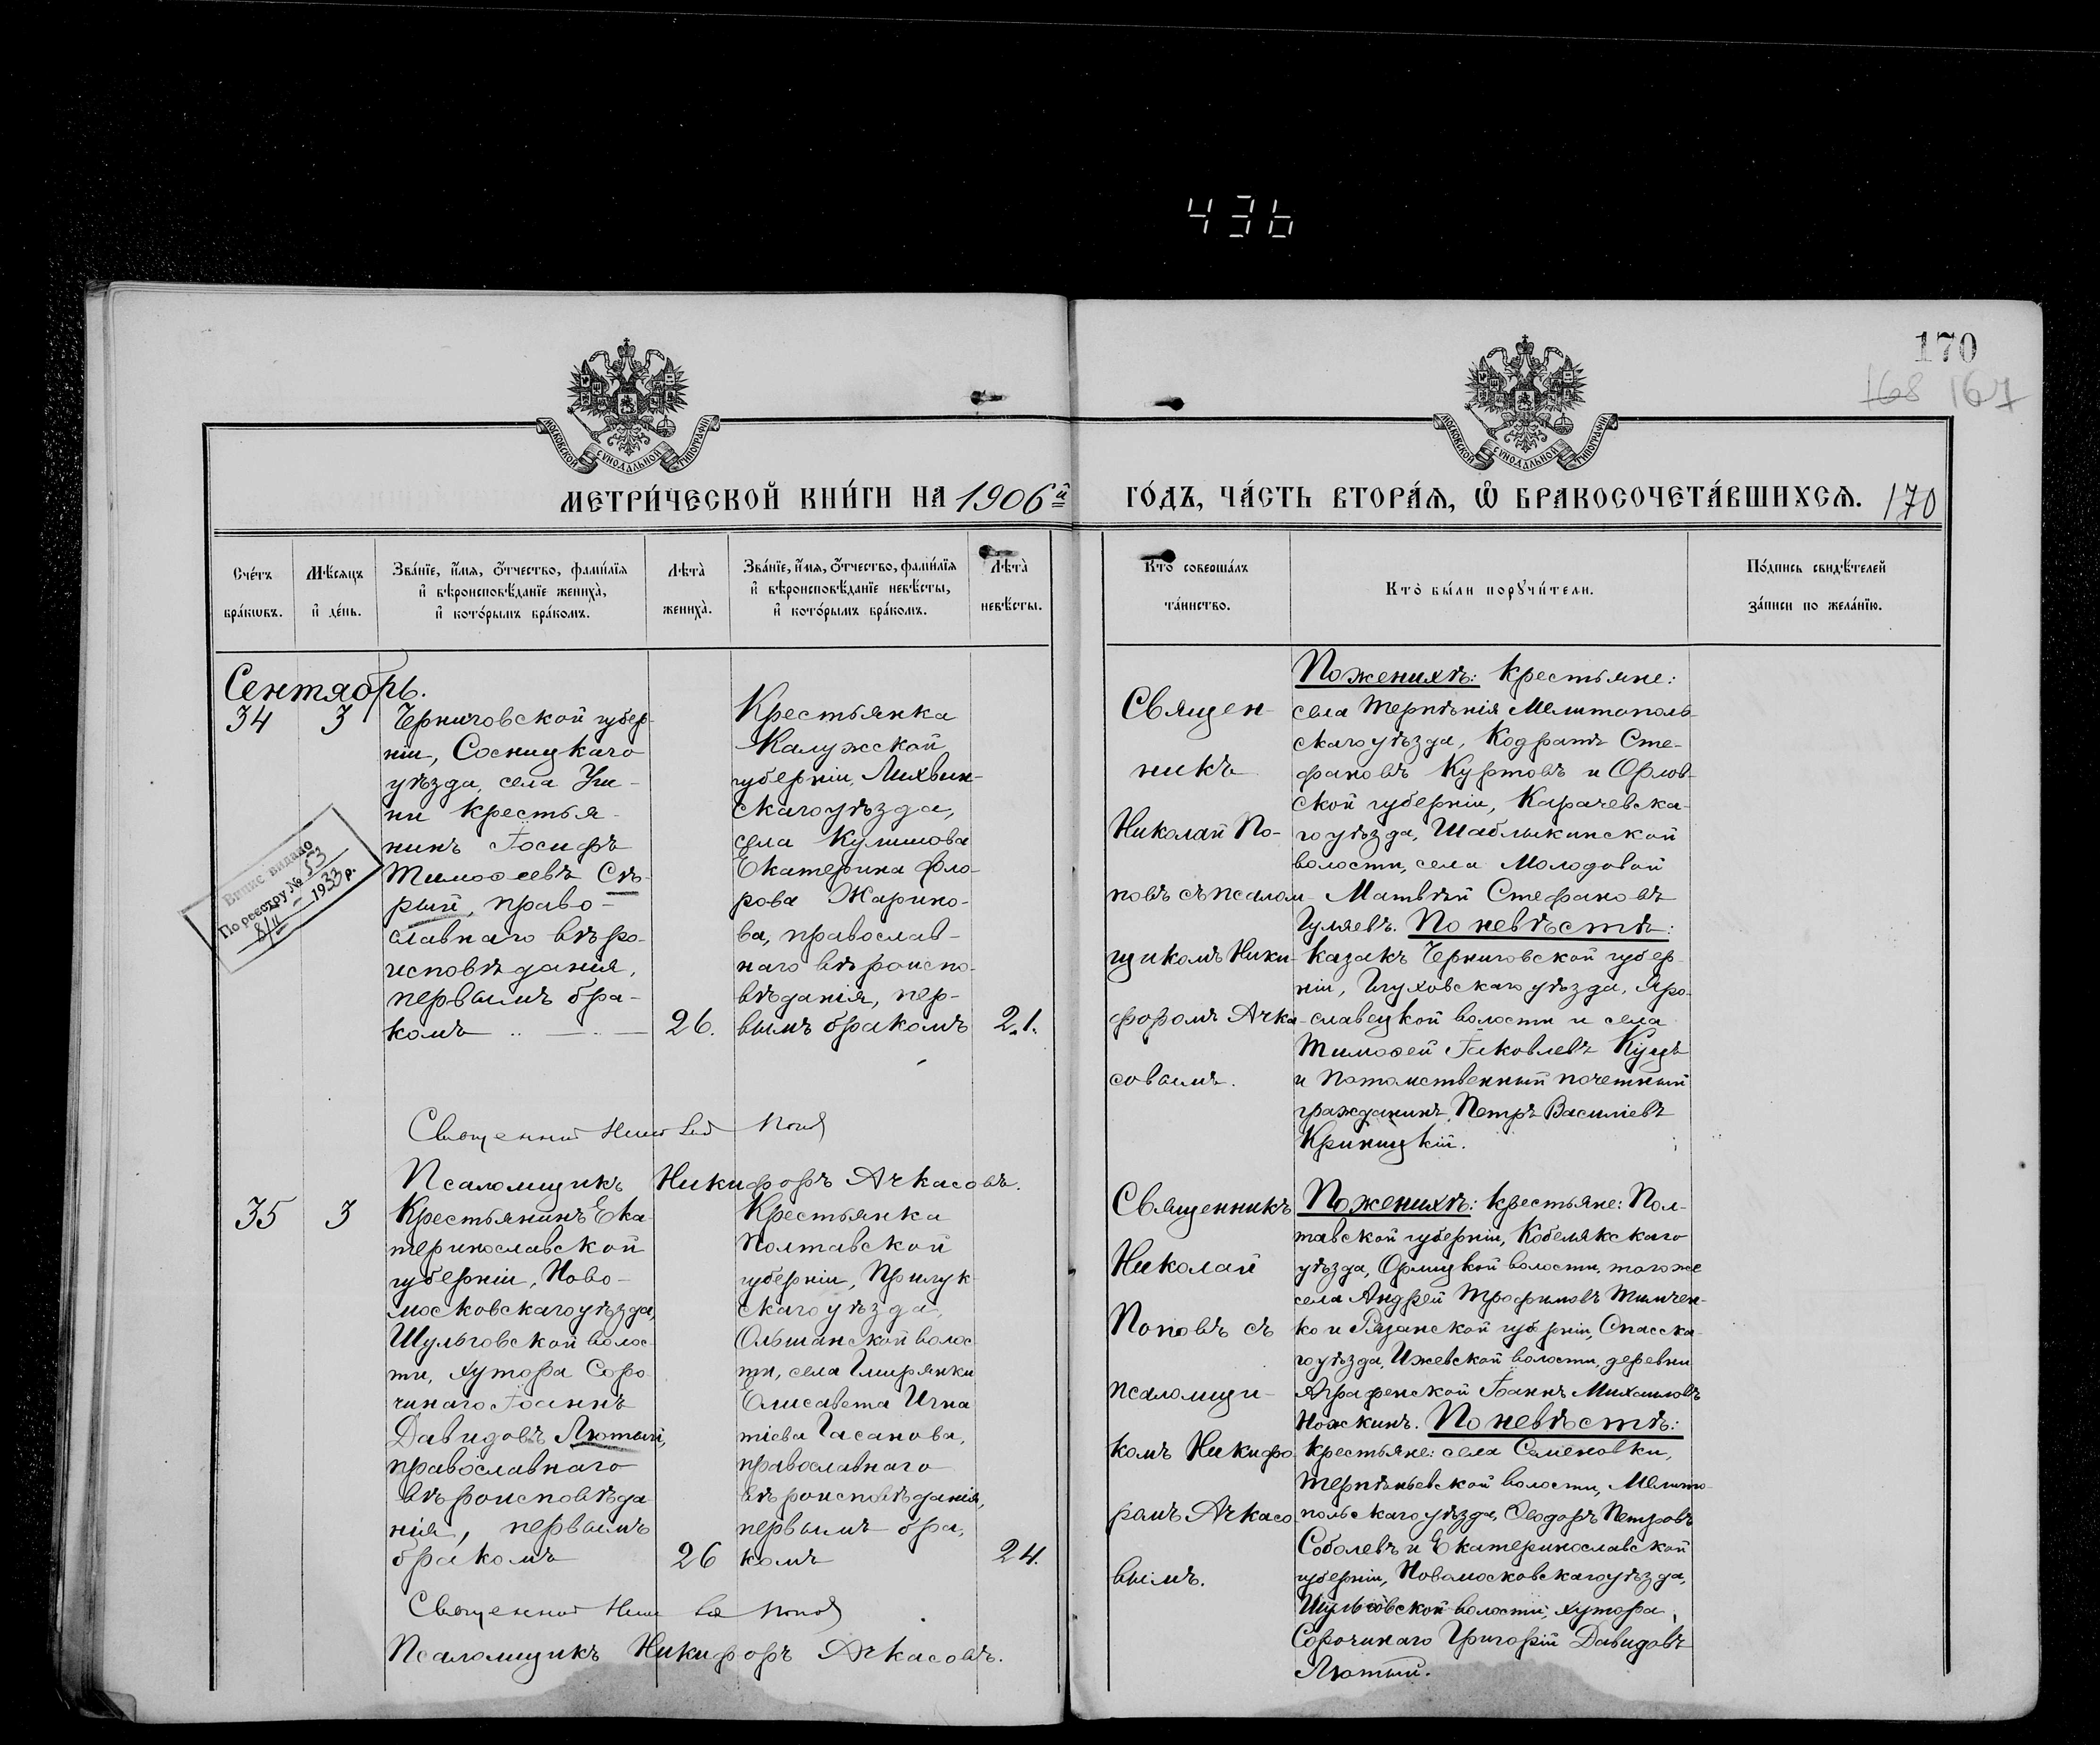 436
170
168 167
МОСКОВСКОЙ СУНОДАЛЬНОЙ ТИПОГРАФІИ
МОСКОВСКОЙ СУНОДАЛЬНОЙ ТИПОГРАФІИ
МЕТРИ́ЧЕСКОЙ КНИ́ГИ НА 1906й ГО́ДЪ, ЧА́СТЬ ВТОРА́Я, Ѡ҆ БРАКОСОЧЕТА́ВШИХСѦ. 170
Сче́тъ
бра́кѡвъ.
Мѣ́сѧцъ
и҆ де́нь.
Зва́нїе, и҆́мѧ, ѻ҆́тчество, фами́лїѧ
и҆ вѣроисповѣ́данїе жениха̀,
и҆ кото́рымъ бра́комъ.
Лѣта̀
жениха̀.
Зва́нїе, и҆́мѧ, ѻ҆́тчество, фами́лїѧ
и҆ вѣроисповѣ́данїе невѣ́сты,
и҆ кото́рымъ бра́комъ.
Лѣта̀
невѣ́сты.
Кто̀ соверша́лъ
та́инство.
Кто̀ бы́ли порꙋчи́тели.
По́дпись свидѣ́телей
за́писи по жела́нїю.
Сентябрь.
34
3
Черниговской губер-
ніи, Сосницкаго
уѣзда, села Уш-
ни крестья-
нинъ Іосифъ
Тимоѳеевъ Сѣ-
рый, право-
славнаго вѣро-
исповѣданія,
первымъ бра-
комъ
26.
Крестьянка
Калужской
губерніи, Лихвин-
скаго уѣзда,
села Кулишова
Екатерина Фло-
рова Жарико-
ва, православ-
наго вѣроиспо-
вѣданія, пер-
вымъ бракомъ
21.
Священ-
никъ
Николай По-
повъ съ псалом-
щикомъ Ники-
форомъ Ачка-
совымъ.
По женихѣ: крестьяне:
села Терпѣнія Мелитополь-
скаго уѣзда, Кодратъ Сте-
фановъ Куртовъ и Орлов-
ской губерніи, Карачевска-
го уѣзда, Шаблыкинской
волости, села Молодовой
Матвѣй Стефановъ
Гуляевъ. По невѣстѣ:
Казакъ Черниговской губер-
ніи, Глуховскаго уѣзда, Яро-
славецкой волости и села
Тимоѳей Іаковлевъ Куцъ
и Потомственный почетный
гражданинъ Петръ Василіевъ
Криницкій.
Випис видано
По реєстру № 53
8/II 1933 р.
Священник Николай Попов
Псаломщикъ Никифоръ Ачкасовъ.
35
3
Крестьянинъ Ека-
теринославской
губерніи, Ново-
московскаго уѣзда,
Шульговской волос-
ти, хутора Соро-
чинаго Іоаннъ
Давидовъ Лютый,
православнаго
вѣроисповѣда-
нія, первымъ
бракомъ
26
Крестьянка
Полтавской
губерніи, Прилук-
скаго уѣзда,
Ольшанской волос-
ти, села Гмирянки
Елисавета Игна-
тіева Гасанова,
православнаго
вѣроисповѣданія,
первымъ бра-
комъ
24.
Священникъ
Николай
Поповъ съ
псаломщи-
комъ Никифо-
ромъ Ачкасо-
вымъ.
По женихѣ: крестьяне: Пол-
тавской губерніи, Кобелякскаго
уѣзда, Орлицкой волости, того же
села Андрей Трофимовъ Тимчен-
ко и Рязанской губерніи, Спасска-
го уѣзда, Ижевской волости, деревни
Аграфенской Іоаннъ Михаиловъ
Ножкинъ. По невѣстѣ:
крестьяне: села Семеновки,
Терпѣньевской волости, Мелито-
польскаго уѣзда, Ѳеодоръ Петровъ
Соболевъ и Екатеринославской
губерніи, Новомосковскаго уѣзда,
Шульговской волости, хутора
Сорочинаго Григорій Давидовъ
Лютый.
Священник Николай Попов
Псаломщикъ Никифоръ Ачкасовъ.